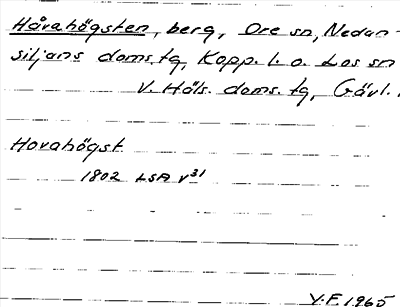 Håvahögsten, berg, Ore sn, Nedan-
siljans doms.tg, Kopp. l. o. Los sn
V. Häls. doms. tg, Gävl.
Hovahögst
1802 LSA V31
V.F. 1965